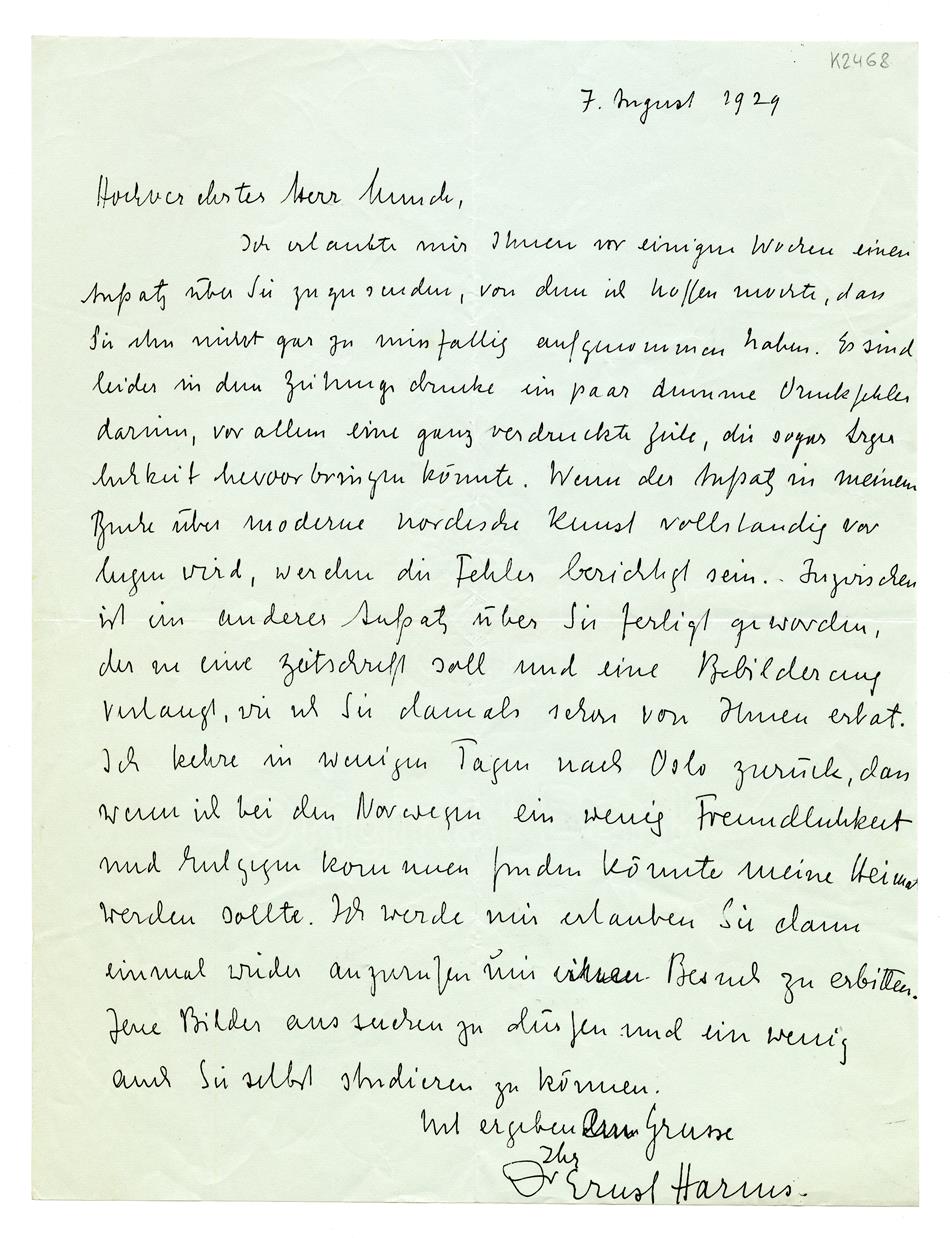 K2468
7. August 1929
Hochverehrter Herr Munch,
Ich erlaubte mir Ihnen vor einigen Wochen einen
Aufsatz über Sie zuzusenden, von dem ich hoffen mochte, dass
Sie ihn nicht gar zu missfällig aufgenommen haben. Es sind
leider in dem Zeitungsdrucke ein paar dumme Druckfehler
darinn, vor allem eine ganz verdruckte Zeile, die sogar Ärger
lichkeit hervoorbringen könnte. Wenn der Aufsatz in meinem
Buche über moderne nordische Kunst vollständig vor
liegen wird, werden die Fehler berichtigt sein. - Inzwischen
ist ein anderer Aufsatz über Sie fertigt geworden,
der in eine Zeitschrift soll und eine Bebilderung
verlangt, wie ich Sie damals schon von Ihnen erbat.
Ich kehre in wenigen Tagen nach Oslo zurück, das
wenn ich bei den Norwegen ein wenig Freundlichkeit
und Entgegenkommen finden könnte meine Heimat
werden sollte. Ich werde mir erlauben Sie dann
einmal wieder anzurufen um Besuch zu erbitten.
Jene Bilder aussuchen zu dürfen und ein wenig
auch Sie selbst studieren zu können.
Mit ergebenem Grusse
Ihr
Dr Ernst Harms.